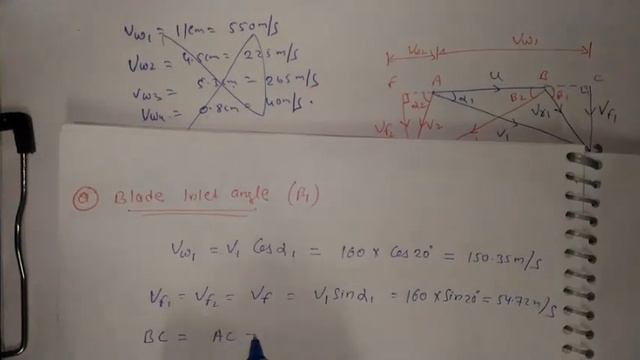 Vω1 = 11cm = 550m/s
Vω2 = 4.5cm = 225m/s
Vω3 = 5.3cm = 265m/s
Vω4 = 0.8cm = 40m/s.
Vω2 Vω1
F A U B C
α2 α1 β2 β1
Vf2 V2 V1 Vr1 Vf1
ⓐ Blade Inlet angle (β1)
Vω1 = V1 Cosα1 = 160 × Cos20° = 150.35m/s
Vf1 = Vf2 = Vf = V1 Sinα1 = 160 × Sin20° = 54.72m/s
BC = AC -